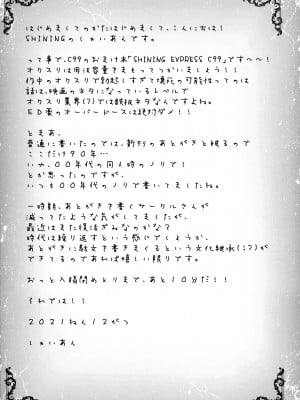 はじめましてのかたはじめまして、こんにちは!
SHININGのしゃいあんです。
って事で、C99のおまけ本「SHINING EXPRESS C99」です~~!
オクスリは用法容量をまもってつかいましょう!!
作中のオクスリで勃起しすぎて壊死の可能性ってのは
話は、映画のネタになっているレベルで
オクスリ業界(?)では鉄板ネタなんですよね。
ED薬のオーバードースは絶対ダメ!!
とまぁ、
普通に書いたのでは、新刊のあとがきと被るので
ここだけ90年…
いや、00年代の同人時のノリで!
とか思ったのですが、
いつも00年代のノリで書いてましたね。
一時期、あとがきを書くサークルさんが
減ってたような気がしてましたが、
最近はまた復活ぎみなのかな?
時代は繰り返すという感じでしょうか、
あとがきに駄文を書きまくるという文化継承(!?)が
できてるのであれば嬉しい限りです。
おっと入稿〆めとりまで、あと10分だ!!
それでは!!
2021ねん12がつ
しゃいあん